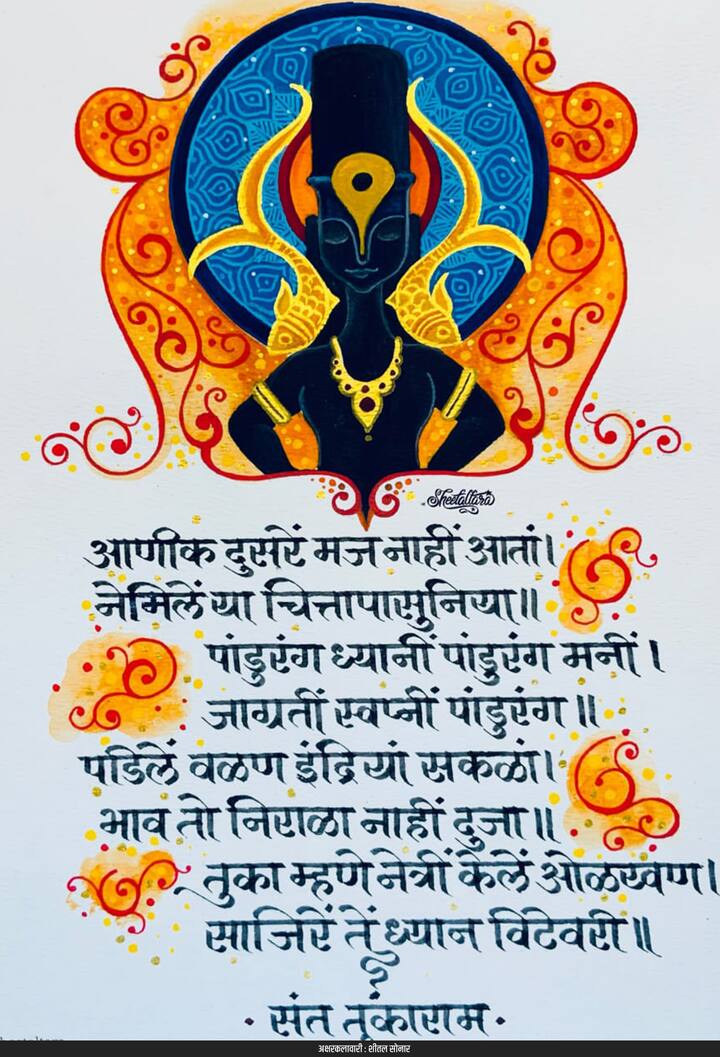 Sheetaltara
आणीक दुसरें मज नाहीं आतां।
नेमिलें या चित्तापासुनिया॥
पांडुरंग ध्यानीं पांडुरंग मनीं।
जाग्रतीं स्वप्नीं पांडुरंग॥
पडिलें वळण इंद्रियां सकळां।
भाव तो निराळा नाहीं दुजा॥
तुका म्हणे नेत्रीं केलें ओळखण।
साजिरें तें ध्यान विटेवरी॥
• संत तुकाराम •
अक्षरकलावारी : शीतल सोनार